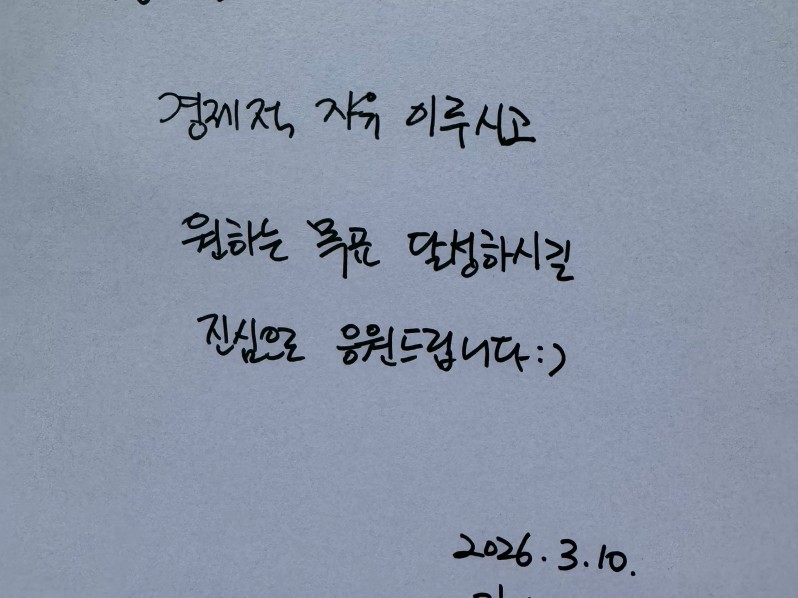 경제적 자유 이루시고
원하는 목표 달성하시길
진심으로 응원드립니다:)
2026.3.10.